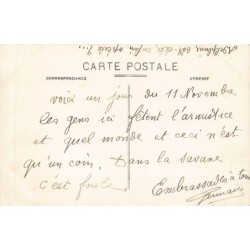 CARTE POSTALE
CORRESPONDANCE
ADRESSE
voici un jour du 11 Novembre
les gens ici fêtent l'armistice
et quel monde et ceci n'est
qu'un coin. Dans la savane
c'est foule
Embrassades à tous
Germaine